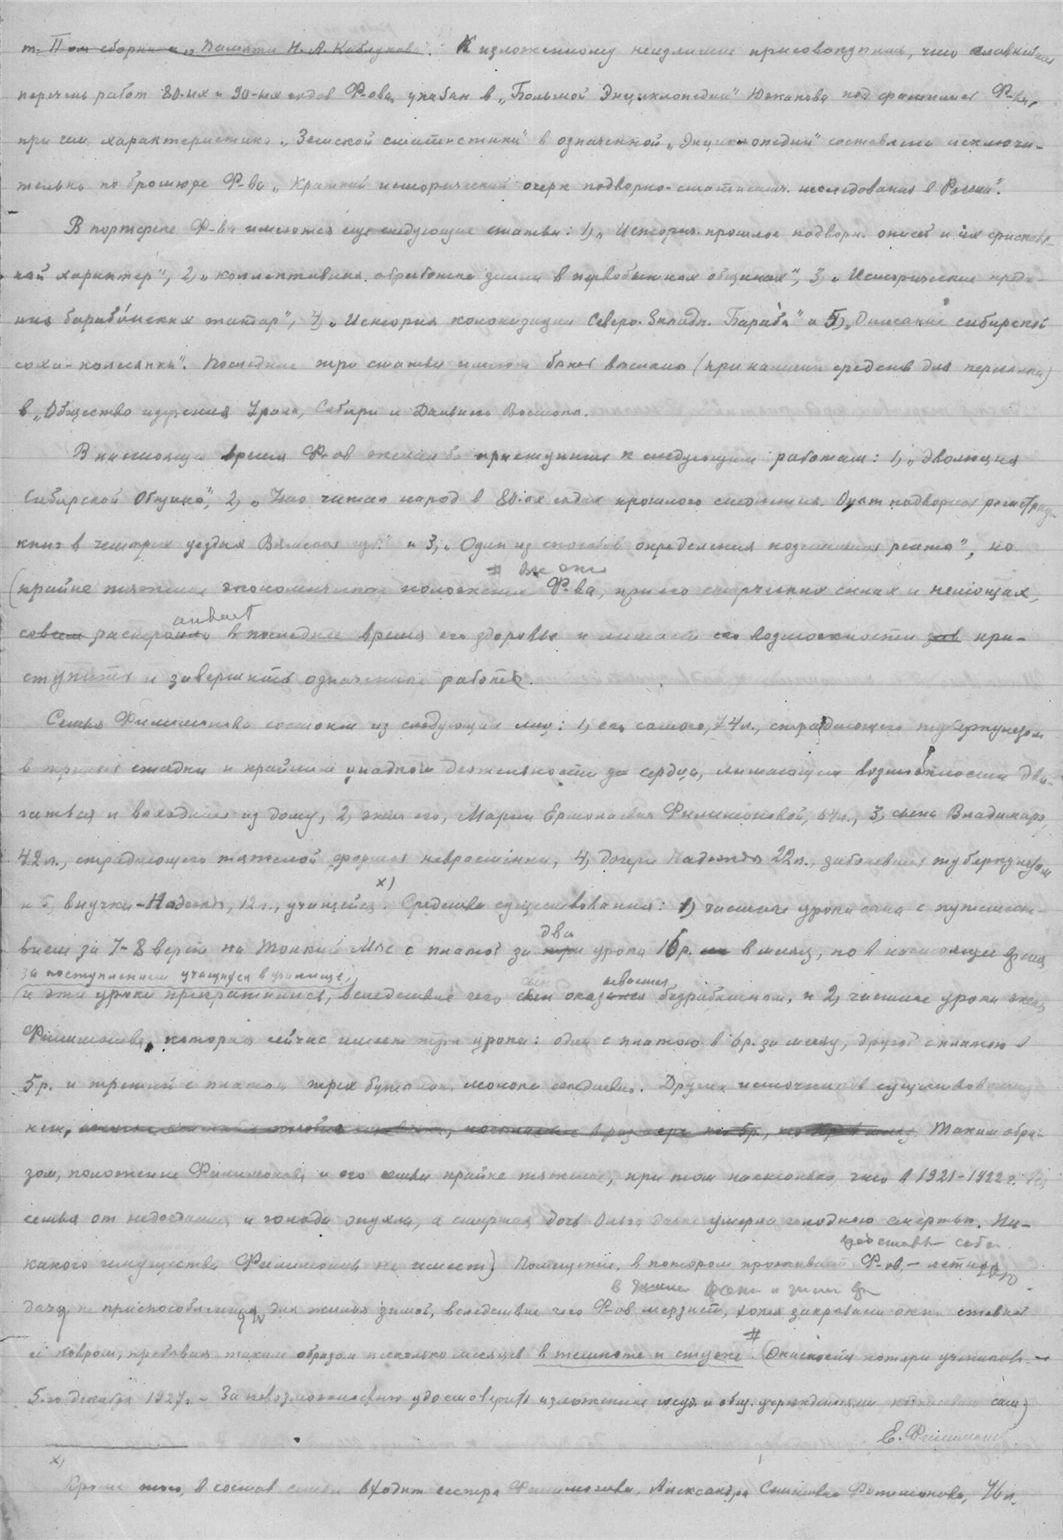 т. II ом сборника „Памяти Н. А. Каблукова“. К изложенному неизлишне присовокупить, что главнейший
перечень работ 80-ых и 90-ых годов Ф-ова указан в „Большой Энциклопедии“ Южакова под фамилией Ф-ва,
при чем характеристика „Земской статистики“ в означенной „Энциклопедии“ составлена исключи-
тельно по брошюре Ф-ва „Краткий исторический очерк подворно-статистич. исследования в России“.
В портфеле Ф-ва имеются еще следующие статьи: 1) „Историч. прошлое подворн. описей и их
характер“, 2) „Коллективная обработка земли в первобытных общинах“, 3) „Исторические преда-
ния барабинских татар“, 4) „История колонизации Северо-Западн. Барабы“ и 5) „Описание сибирской
сохи-колесянки“. Последние три статьи могли бы быть высланы (при наличии средств для пересылки)
в „Общество изучения Урала, Сибири и Дальнего Востока.
В настоящее время Ф-ов желал бы приступить к следующим работам: 1) „Эволюция
Сибирской Общины“, 2) „Что читал народ в 80-ых годах прошлого столетия. Опыт подворной регистрации
книг в четырех уездах Вятской губ.“ и 3) „Один из способов определения подлинника“, но
# все они
(крайне тяжелое экономическое положение Ф-ва, при его старческих силах и немощах,
аивает
совсем расстроило в последнее время его здоровье и лишает его возможности зав при-
ступить и завершить означенные работы.
Семья Филимонова состоит из следующих лиц: 1) его самого, 74 л., страдающего туберкулезом
в третьей стадии и крайним упадком деятельности сердца, лишающим возможности дви-
гаться и выходить из дому, 2) жены его, Марии Ермолаевны Филимоновой, 64 л., 3) сына Владимира,
42 л., страдающего тяжелой формой неврастении, 4) дочери Надежды 22 л., заболевшей туберкулезом
и 5) внучки – Надежды, 12 л., учащейся. х) Средства существования: 1) частные уроки сына с путешест-
два
вием за 7-8 верст на Тонкий Мыс с платой за три урока 15 р. в месяц, но в настоящее время
за поступлением учащихся в училище,
(и эти уроки прекратились, вследствие чего сын оказался безработным, и 2) частные уроки жены
Филимонова, которая сейчас имеет три урока: один с платою в 6 р. за месяц, другой с платою в
5 р. и третий с платой трех бутылок молока ежедневно. Других источников существования
нет, Таким обра-
зом, положение Филимонова и его семьи крайне тяжелое, при том настолько, что в 1921-1922 г. вся
семья от недоедания и голода опухла, а старшая дочь Ольга даже умерла голодною смертью. Ни-
представл. собой
какого имущества Филимонов не имеет) Помещение, в котором проживает Ф-ов, – летняя
дача, не приспособленная для жилья зимой, вследствие чего Ф-ов мерзнет, хотя закрывает окна ставней
и ковром, пребывая таким образом несколько месяцев в темноте и стуже. #
5-го декабря 1927 г. – За невозможностью удостоверить изложенное суд. и общ. учреждениями сам)
Е. Филимонов
х) Кроме того, в состав семьи входит сестра Филимонова, Александра Семеновна Филимонова, 76 л.